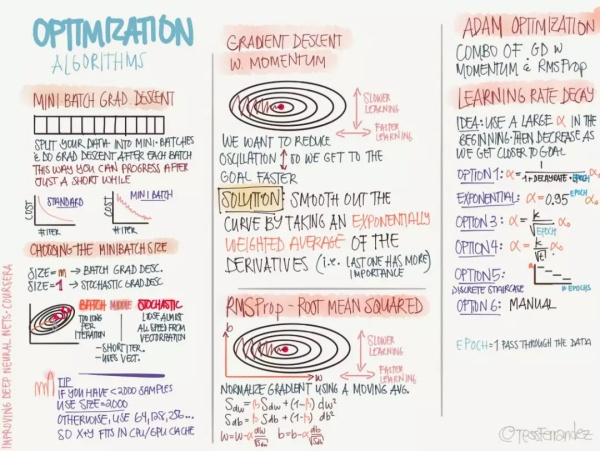 OPTIMIZATION
ALGORITHMS
MINI BATCH GRAD. DESCENT
SPLIT YOUR DATA INTO MINI-BATCHES
& DO GRAD DESCENT AFTER EACH BATCH
THIS WAY YOU CAN PROGRESS AFTER
JUST A SHORT WHILE
COST
STANDARD
# ITER
COST
MINI BATCH
# ITER
CHOOSING THE MINIBATCH SIZE
SIZE=m → BATCH GRAD DESC.
SIZE=1 → STOCHASTIC GRAD DESC
BATCH
TOO LONG
PER
ITERATION
MIDDLE
STOCHASTIC
LOOSE ALMOST
ALL SPEED FROM
VECTORIZATION
- SHORT ITER.
- USES VECT.
TIP
IF YOU HAVE <2000 SAMPLES
USE SIZE=2000
OTHERWISE, USE 64,128,256...
SO X+Y FITS IN CPU/GPU CACHE
IMPROVING DEEP NEURAL NETS · COURSERA
GRADIENT DESCENT
W. MOMENTUM
SLOWER
LEARNING
FASTER
LEARNING
WE WANT TO REDUCE
OSCILLATION ↕ SO WE GET TO THE
GOAL FASTER
SOLUTION: SMOOTH OUT THE
CURVE BY TAKING AN EXPONENTIALLY
WEIGHTED AVERAGE OF THE
DERIVATIVES (i.e. LAST ONE HAS MORE
IMPORTANCE)
RMSProp - ROOT MEAN SQUARED
b
SLOWER
LEARNING
FASTER
LEARNING
w
NORMALIZE GRADIENT USING A MOVING AVG.
Sdw = β Sdw + (1-β) dw²
Sdb = β Sdb + (1-β) db²
w = w-α dw/√Sdw b = b-α db/√Sdb
ADAM OPTIMIZATION
COMBO OF GD W
MOMENTUM & RMSProp
LEARNING RATE DECAY
IDEA: USE A LARGE α IN THE
BEGINNING. THEN DECREASE AS
WE GET CLOSER TO GOAL
OPTION 1: α = 1/(1+DECAYRATE·EPOCH)
EXPONENTIAL: α = 0.95^EPOCH α₀
OPTION 3: α = k/√EPOCH α₀
OPTION 4: α = k/√t α₀
OPTION 5:
DISCRETE STAIRCASE
EPOCHS
OPTION 6: MANUAL
EPOCH = 1 PASS THROUGH THE DATA
@TessFerrandez